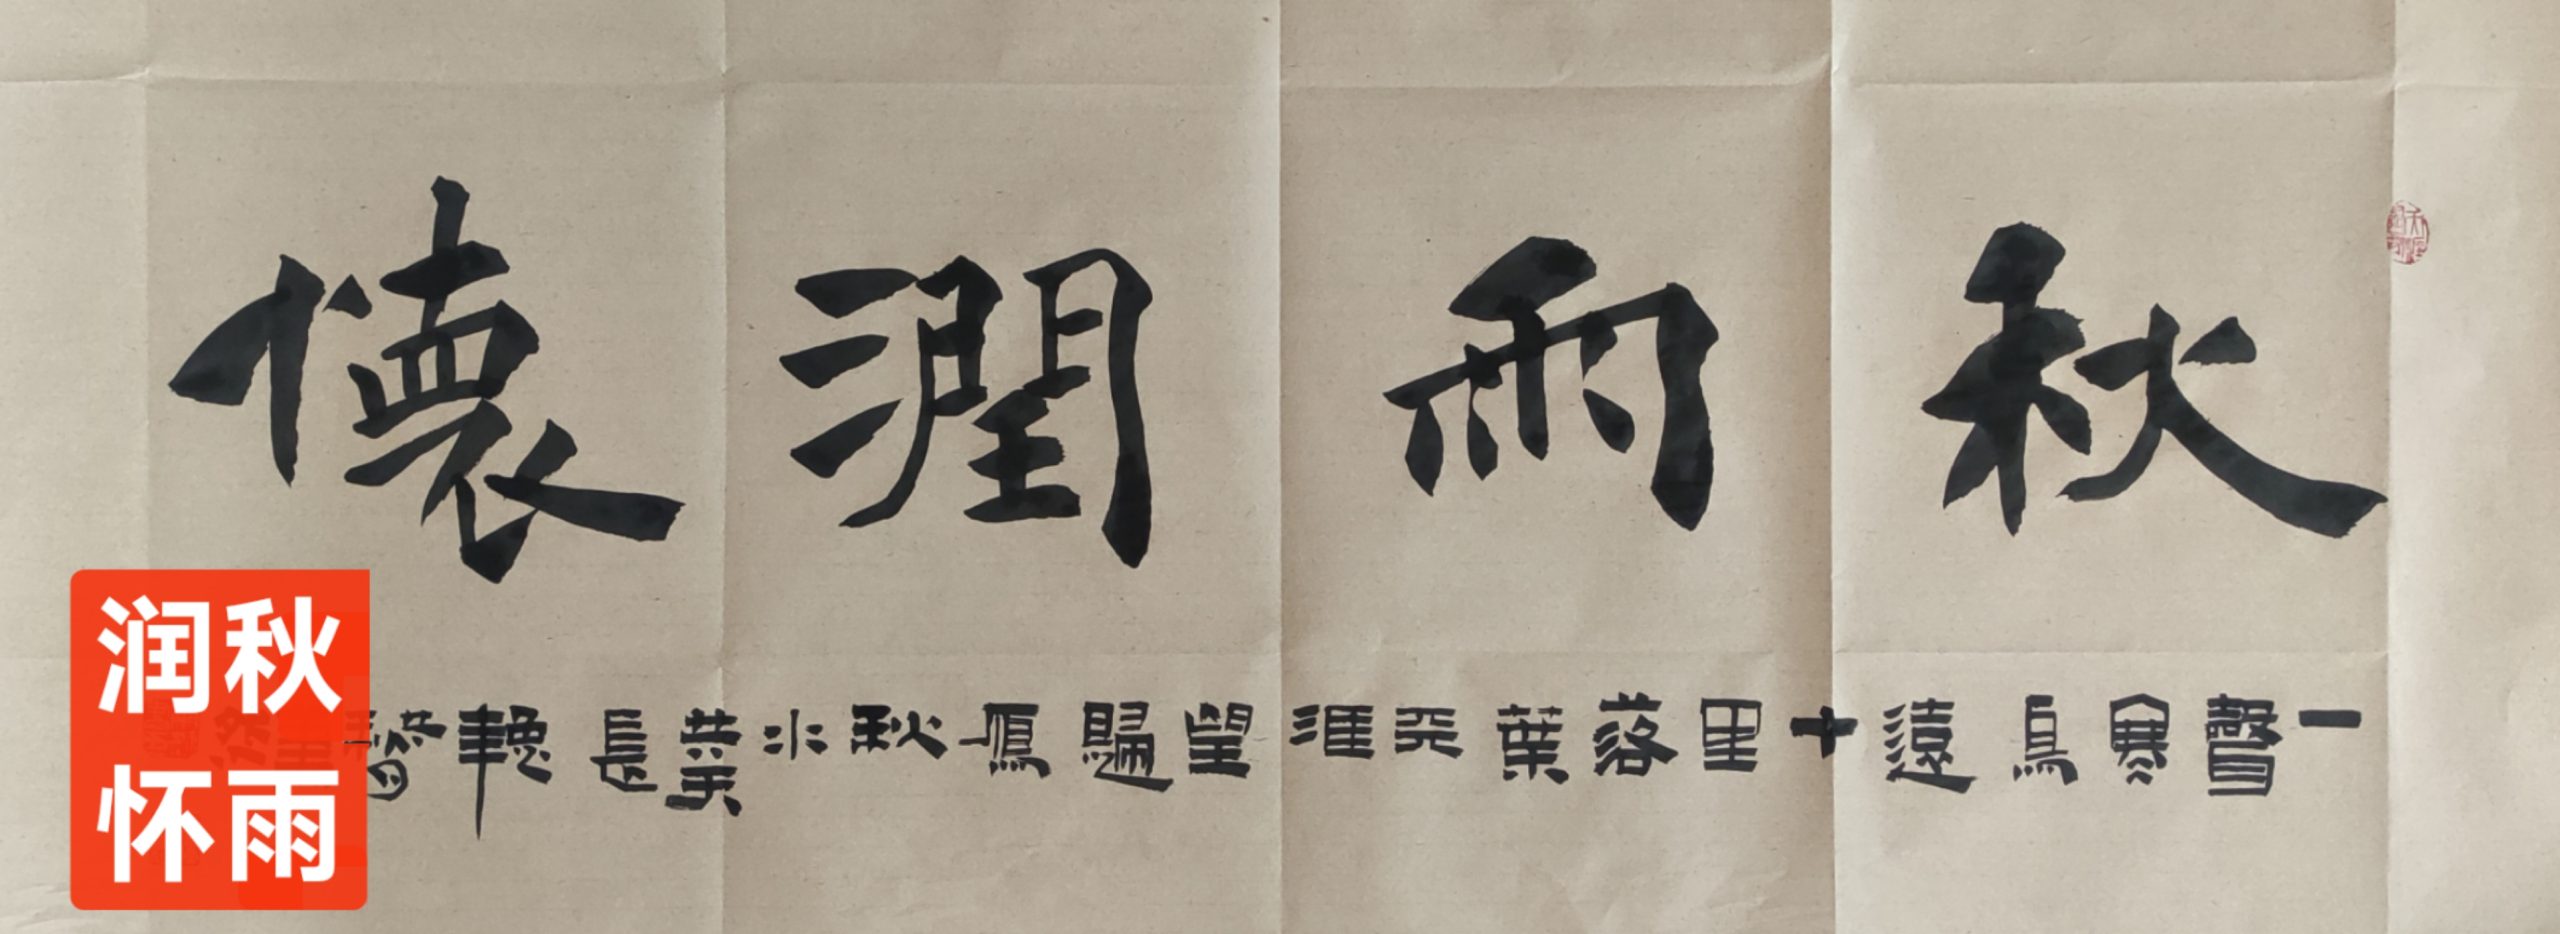 秋雨潤懷
一聲寒鳥遠十里落葉平淮望歸鴈秋水葉長
秋雨
润怀